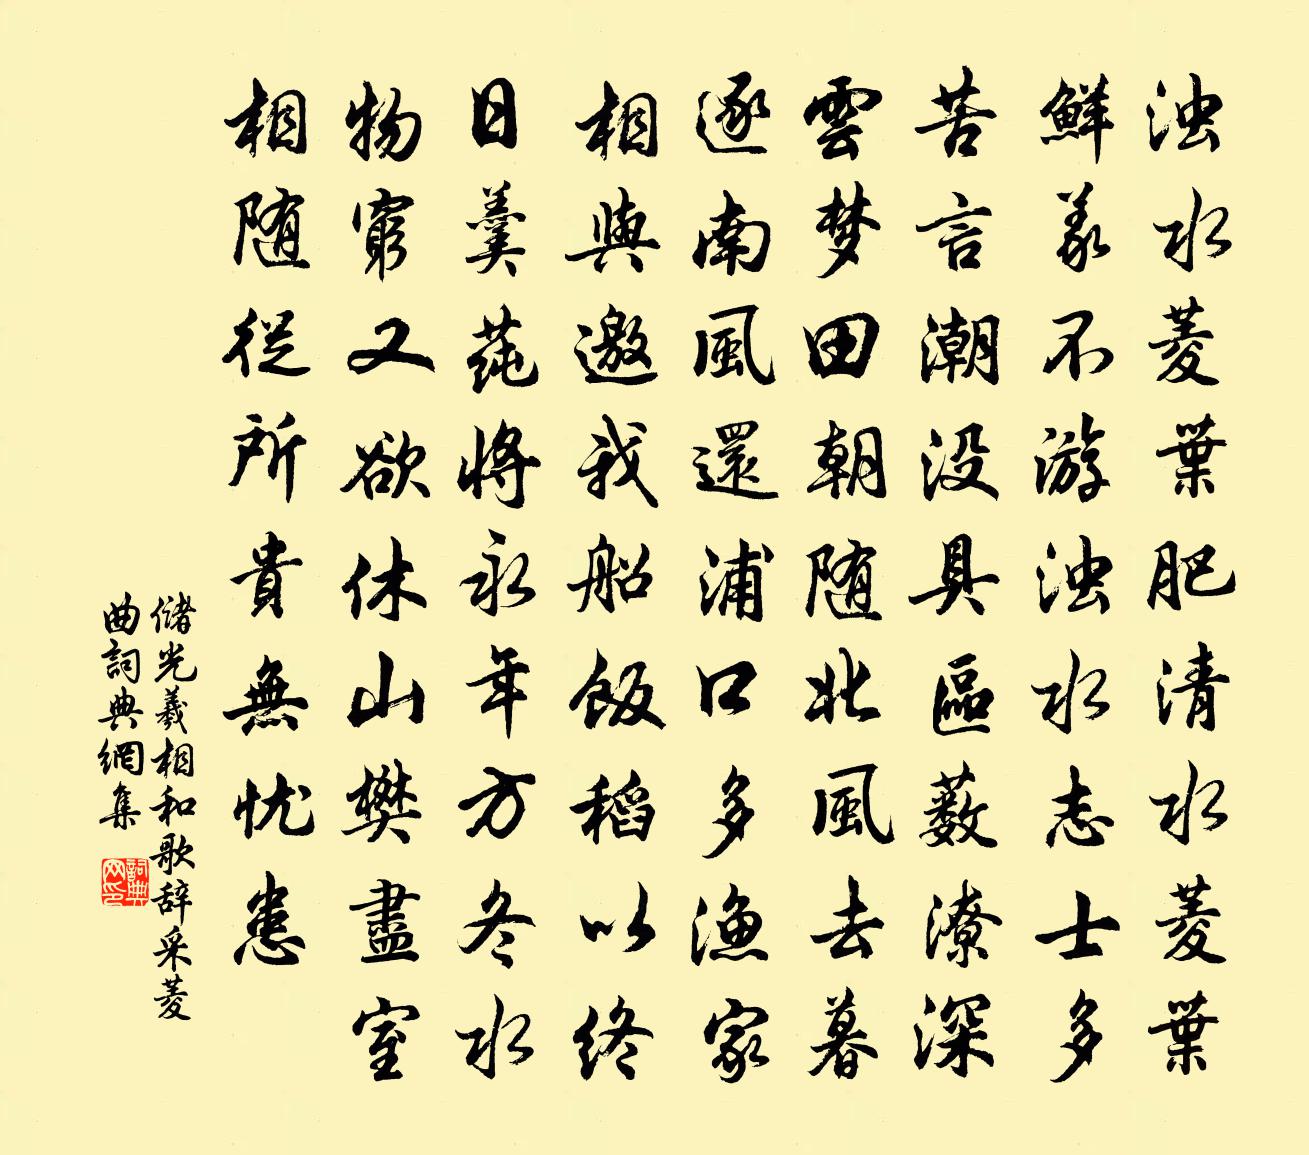 浊水菱葉肥清水菱葉
鮮義不游浊水志士多
苦言潮没具區藪潦深
雲梦田朝随北風去暮
逐南風還浦口多漁家
相與邀我船飯稻以终
日羹莼将永年方冬水
物窮又欲休山樊盡室
相随從所貴無忧患
儲光羲相和歌辞采菱
曲詞典網集
詞典
网印